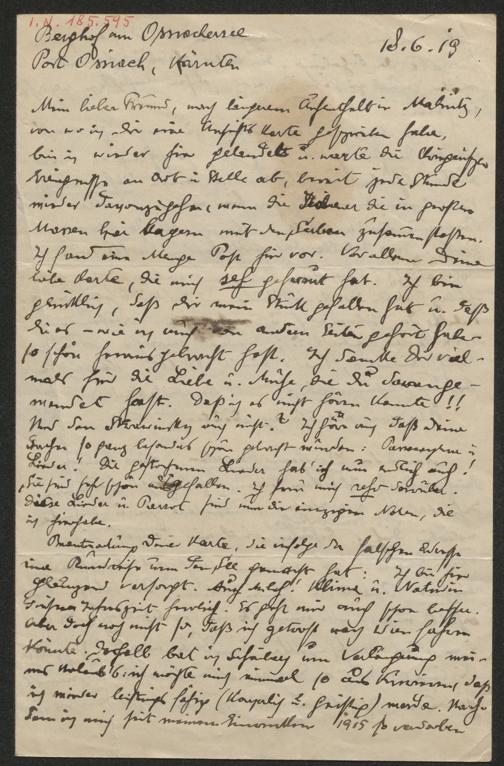 I.N. 185.595
Berghof am Ossiachersee
Post Ossiach, Kärnten
18.6.19
Mein lieber Freund, nach längerem Aufenthalt in Mallnitz,
von wo ich dir eine Ansichtskarte geschrieben habe,
bin ich wieder hier gelandet u. warte die kriegerischen
Ereignisse an Ort u. Stelle ab, bereit jede Stunde
wieder davonzugehen, wenn die die in großen
Massen hier lagern mit den zusammenstoßen.
Ich fand eine Menge Post hier vor. Vor allem Deine
liebe Karte, die mich sehr gefreut hat. Ich bin
glücklich, daß dir mein Stück gefallen hat u. daß
du es – wie ich auch von anderen Seiten gehört habe –
so schön herausgebracht hast. Ich danke dir viel-
mals für die Liebe u. Mühe, die du darange-
wendet hast. Daß ich es nicht hören konnte!!
Und den Strawinsky auch nicht! Ich höre auch daß deine
Sachen so ganz besonders schön gebracht wurden: Passacaglia u.
Lieder! Die Lieder hab' ich nun endlich auch!
Sie sind sehr schön ausgefallen. Ich freu mich sehr darüber.
Diese Lieder u. Pierrot sind nun die einzigen Noten, die
ich hier habe.
Deine Karte, die infolge der falschen Adresse
eine Rundreise um den See gemacht hat. Ich bin hier
glänzend versorgt. Auch Milch! Klima u. Natur in
dieser Jahreszeit herrlich. Es geht mir auch schon besser.
Aber doch noch nicht so, daß ich getrost nach Wien fahren
könnte. Deshalb bat ich Schönberg um Verlängerung mei-
nes Urlaubs; ich möchte mich einmal so daß
ich wieder leistungsfähig (körperlich u. geistig) werde. Nach-
dem ich mich seit meinem Einrücken 1915 so